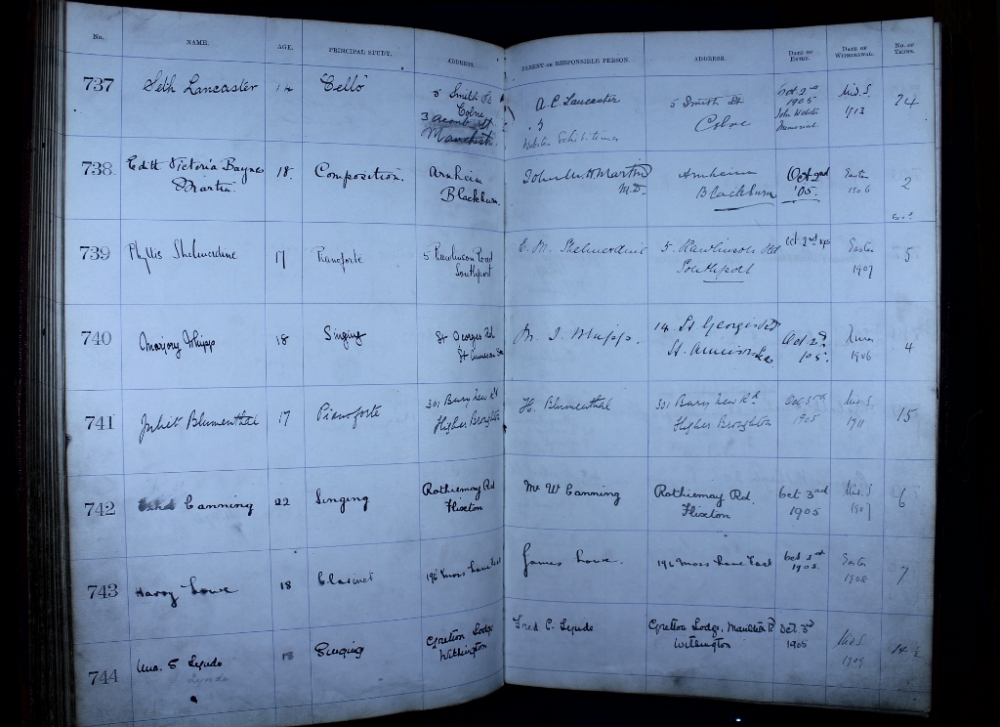 No. NAME. AGE. PRINCIPAL STUDY. ADDRESS. PARENT OR RESPONSIBLE PERSON. ADDRESS. DATE OF ENTRY. DATE OF WITHDRAWAL. NO. OF TERMS.
737 Seth Lancaster 14 Cello 5 Smith St A. E. Lancaster 5 Smith St Oct 2nd Mids. 24
Colne Colne 1905 1913
3 St John Webster
Manchester Webster Exhibitioner Memorial
738 Edith Victoria Bayne 18 Composition. Arnheim John M. H. Martin Arnheim Oct 2nd Easter 2
Martin Blackburn. M.D. Blackburn '05. 1906
739 Phyllis Shelmerdine 17 Pianoforte 5 Rawlinson Road C. M. Shelmerdine 5. Rawlinson Rd Oct 2nd 1905 Easter 5
Southport Southport 1907
740 Marjory Whipp 18 Singing St Georges Rd 14 St Georges Rd Oct 2nd Xmas 4
St Annes on Sea St. Annes on Sea 1905. 1906
741 Juliet Blumenthal 17 Pianoforte 301 Bury New Rd H. Blumenthal 301 Bury New Rd Oct 3rd Mids. 15
Higher Broughton Higher Broughton 1905 1911
742 Canning 22 Singing Rothiemay Rd Mr W Canning Rothiemay Rd Oct 3rd Mids. 6
Flixton Flixton 1905 1907
743 Harry Lowe 18 Clarinet 196 Moss Lane East James Lowe. 196 Moss Lane East Oct 3rd Easter 7
1905 1908
744 Una. S Lynde 18 Singing Gretton Lodge Fred. C. Lynde Gretton Lodge, Oct 3rd Mids.
Lynde Withington Withington 1905 1909